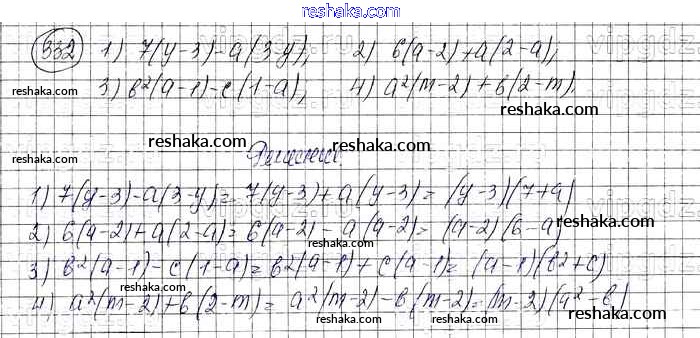 reshaka.com
332 1) 7(y-3)-a(3-y); 2) 6(a-2)+a(2-a);
reshaka.com
3) b²(a-1)-c(1-a); 4) a²(m-2)+b(2-m).
reshaka.com
reshaka.com
Решение.
reshaka.com
1) 7(y-3)-a(3-y)=7(y-3)+a(y-3)=(y-3)(7+a)
reshaka.com
2) 6(a-2)+a(2-a)=6(a-2)-a(a-2)=(a-2)(6-a)
reshaka.com
reshaka.com
3) b²(a-1)-c(1-a)=b²(a-1)+c(a-1)=(a-1)(b²+c)
reshaka.com
4) a²(m-2)+b(2-m)=a²(m-2)-b(m-2)=(m-2)(a²-b)
reshaka.com